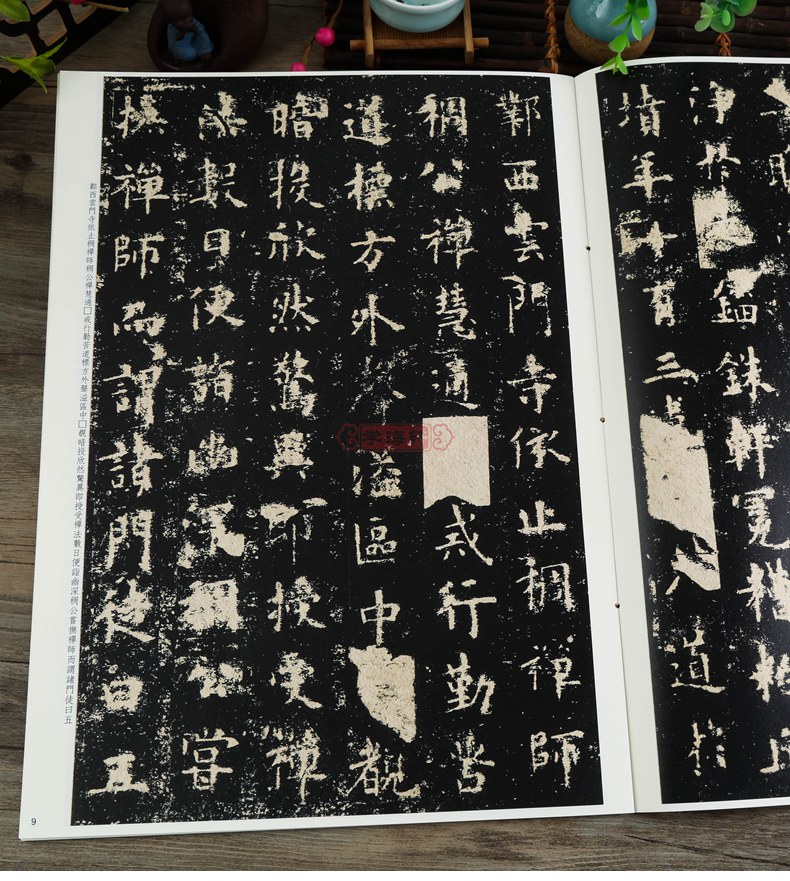 淨於錙銖軒冕糟粕丘
墳年十有三入道於
鄴西雲門寺依止稠禪師
稠公禪慧通戒行勤苦
道標方外聲溢區中觀
暗投欣然驚異即授受禪
法數日便詣幽深稠公嘗
撫禪師而謂諸門徒曰五
鄴西雲門寺依止稠禪師稠公禪慧通□戒行勤苦道標方外聲溢區中□觀暗投欣然驚異即授受禪法數日便詣幽深稠公嘗撫禪師而謂諸門徒曰五
9
学海轩